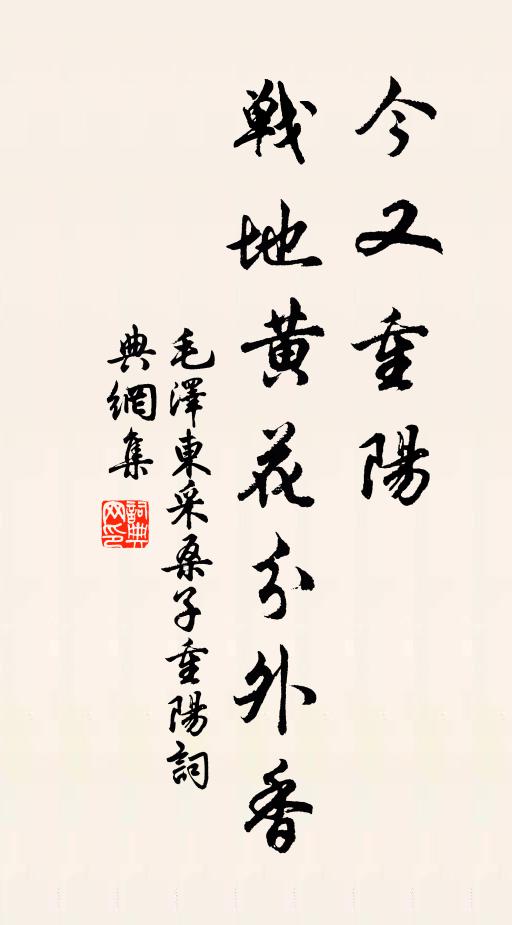 今又重陽
戰地黃花分外香
毛澤東采桑子重陽詞
典網集
詞典
网印